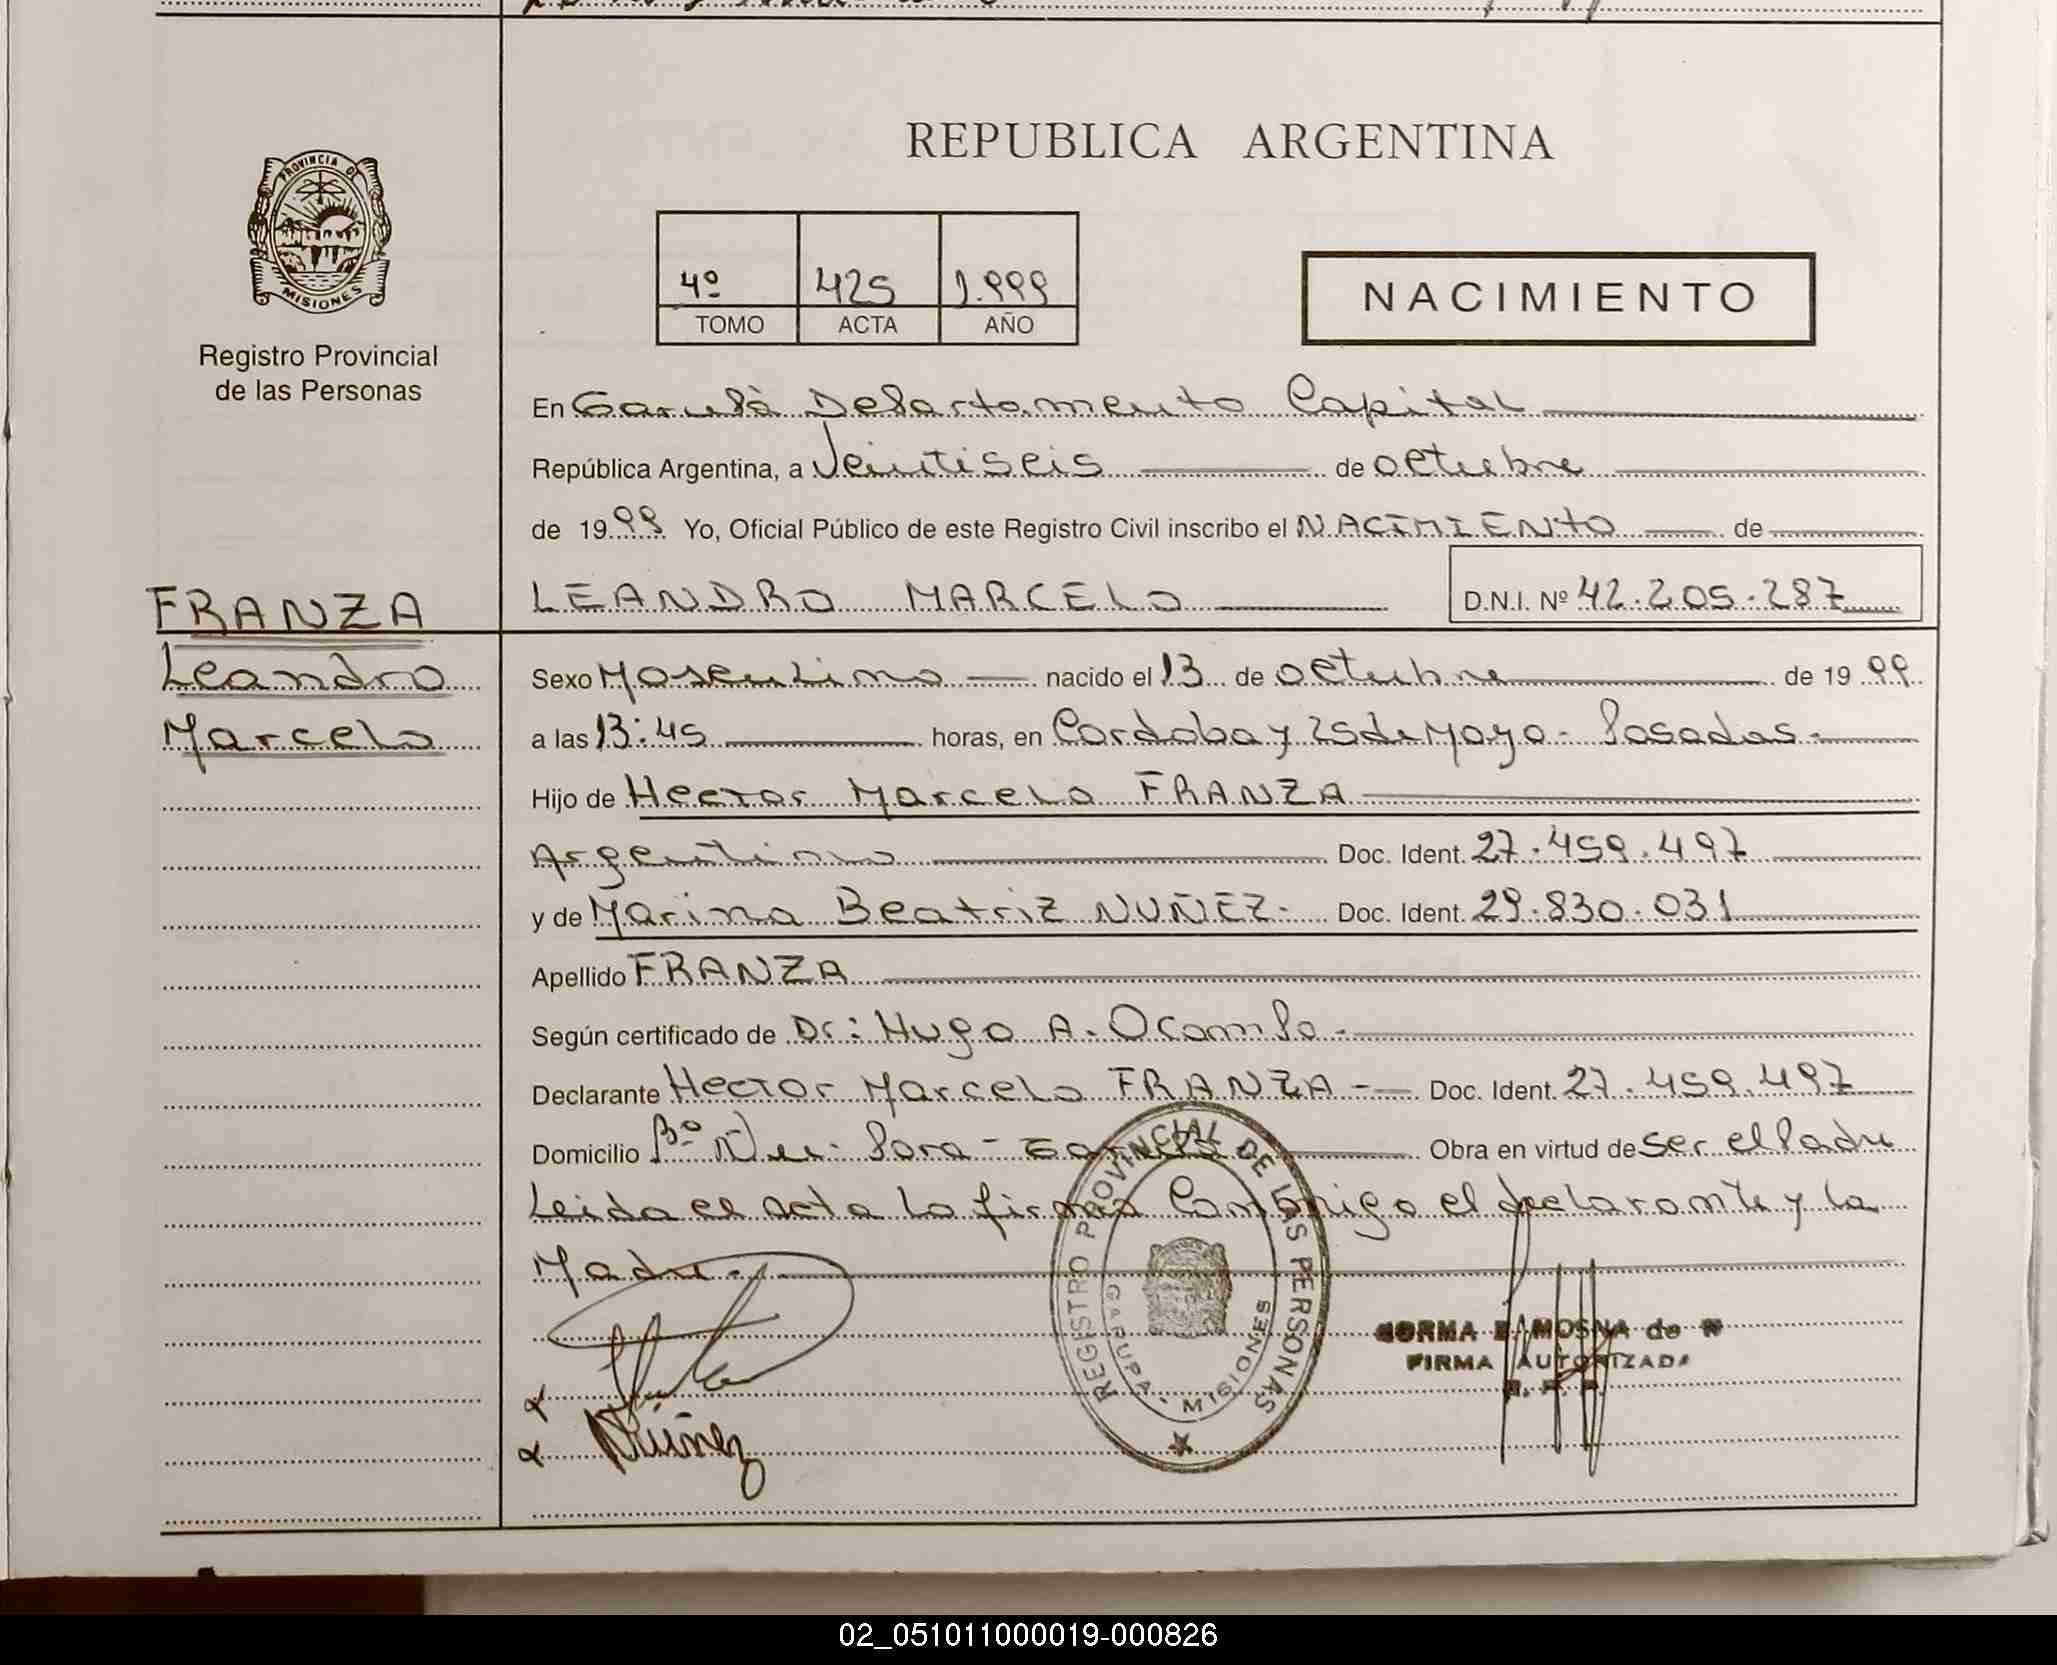 REPUBLICA ARGENTINA
PROVINCIA DE
MISIONES
Registro Provincial
de las Personas
4º 425 1.999
TOMO ACTA AÑO
NACIMIENTO
En Garupà Departamento Capital
República Argentina, a Veintiseis de octubre
de 1999 Yo, Oficial Público de este Registro Civil inscribo el NACIMIENTO de
LEANDRO MARCELO D.N.I. Nº 42.205.287
FRANZA
Leandro
Marcelo
Sexo Masculino nacido el 13 de octubre de 1999
a las 13:45 horas, en Cordoba y 25 de Mayo - Posadas -
Hijo de Hector Marcelo FRANZA
Argentino Doc. Ident. 27.459.497
y de Marina Beatriz NUÑEZ - Doc. Ident. 29.830.031
Apellido FRANZA
Según certificado de Dr: Hugo A. Ocampo -
Declarante Hector Marcelo FRANZA - Doc. Ident. 27.459.497
Domicilio Bº Ñu Pora - Garupà Obra en virtud de ser el Padre
Leida el acta la firma Conmigo el declarante y la
Madre.
REGISTRO PROVINCIAL DE LAS PERSONAS
GARUPA - MISIONES
NORMA MOSNA de
FIRMA AUTORIZADA
Núñez
02_051011000019-000826